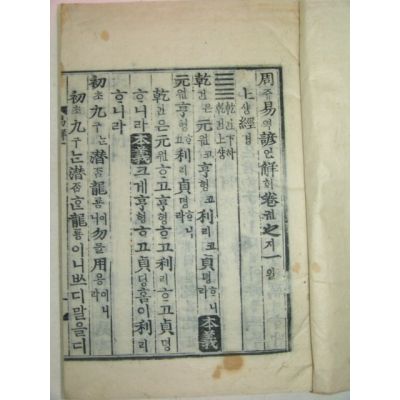 周쥬易역諺언解ᄒᆡ卷권之지一일
上샹經경
䷀乾건下하乾건上샹
乾건은元원코亨형코利리코貞뎡ᄒᆞ니라本義
元원亨형ᄒᆞ고利리貞뎡ᄒᆞ니라
乾건은元원亨형ᄒᆞ고利리ᄒᆞ고貞뎡
ᄒᆞ니라本義크게亨형ᄒᆞ고貞뎡홈이利리
ᄒᆞ니라
初초九구ᄂᆞᆫ潛ᄌᆞᆷ龍룡이니勿믈用용이니라
初초九구ᄂᆞᆫ潛ᄌᆞᆷᄒᆞᆫ龍룡이니ᄡᅳ디말을디